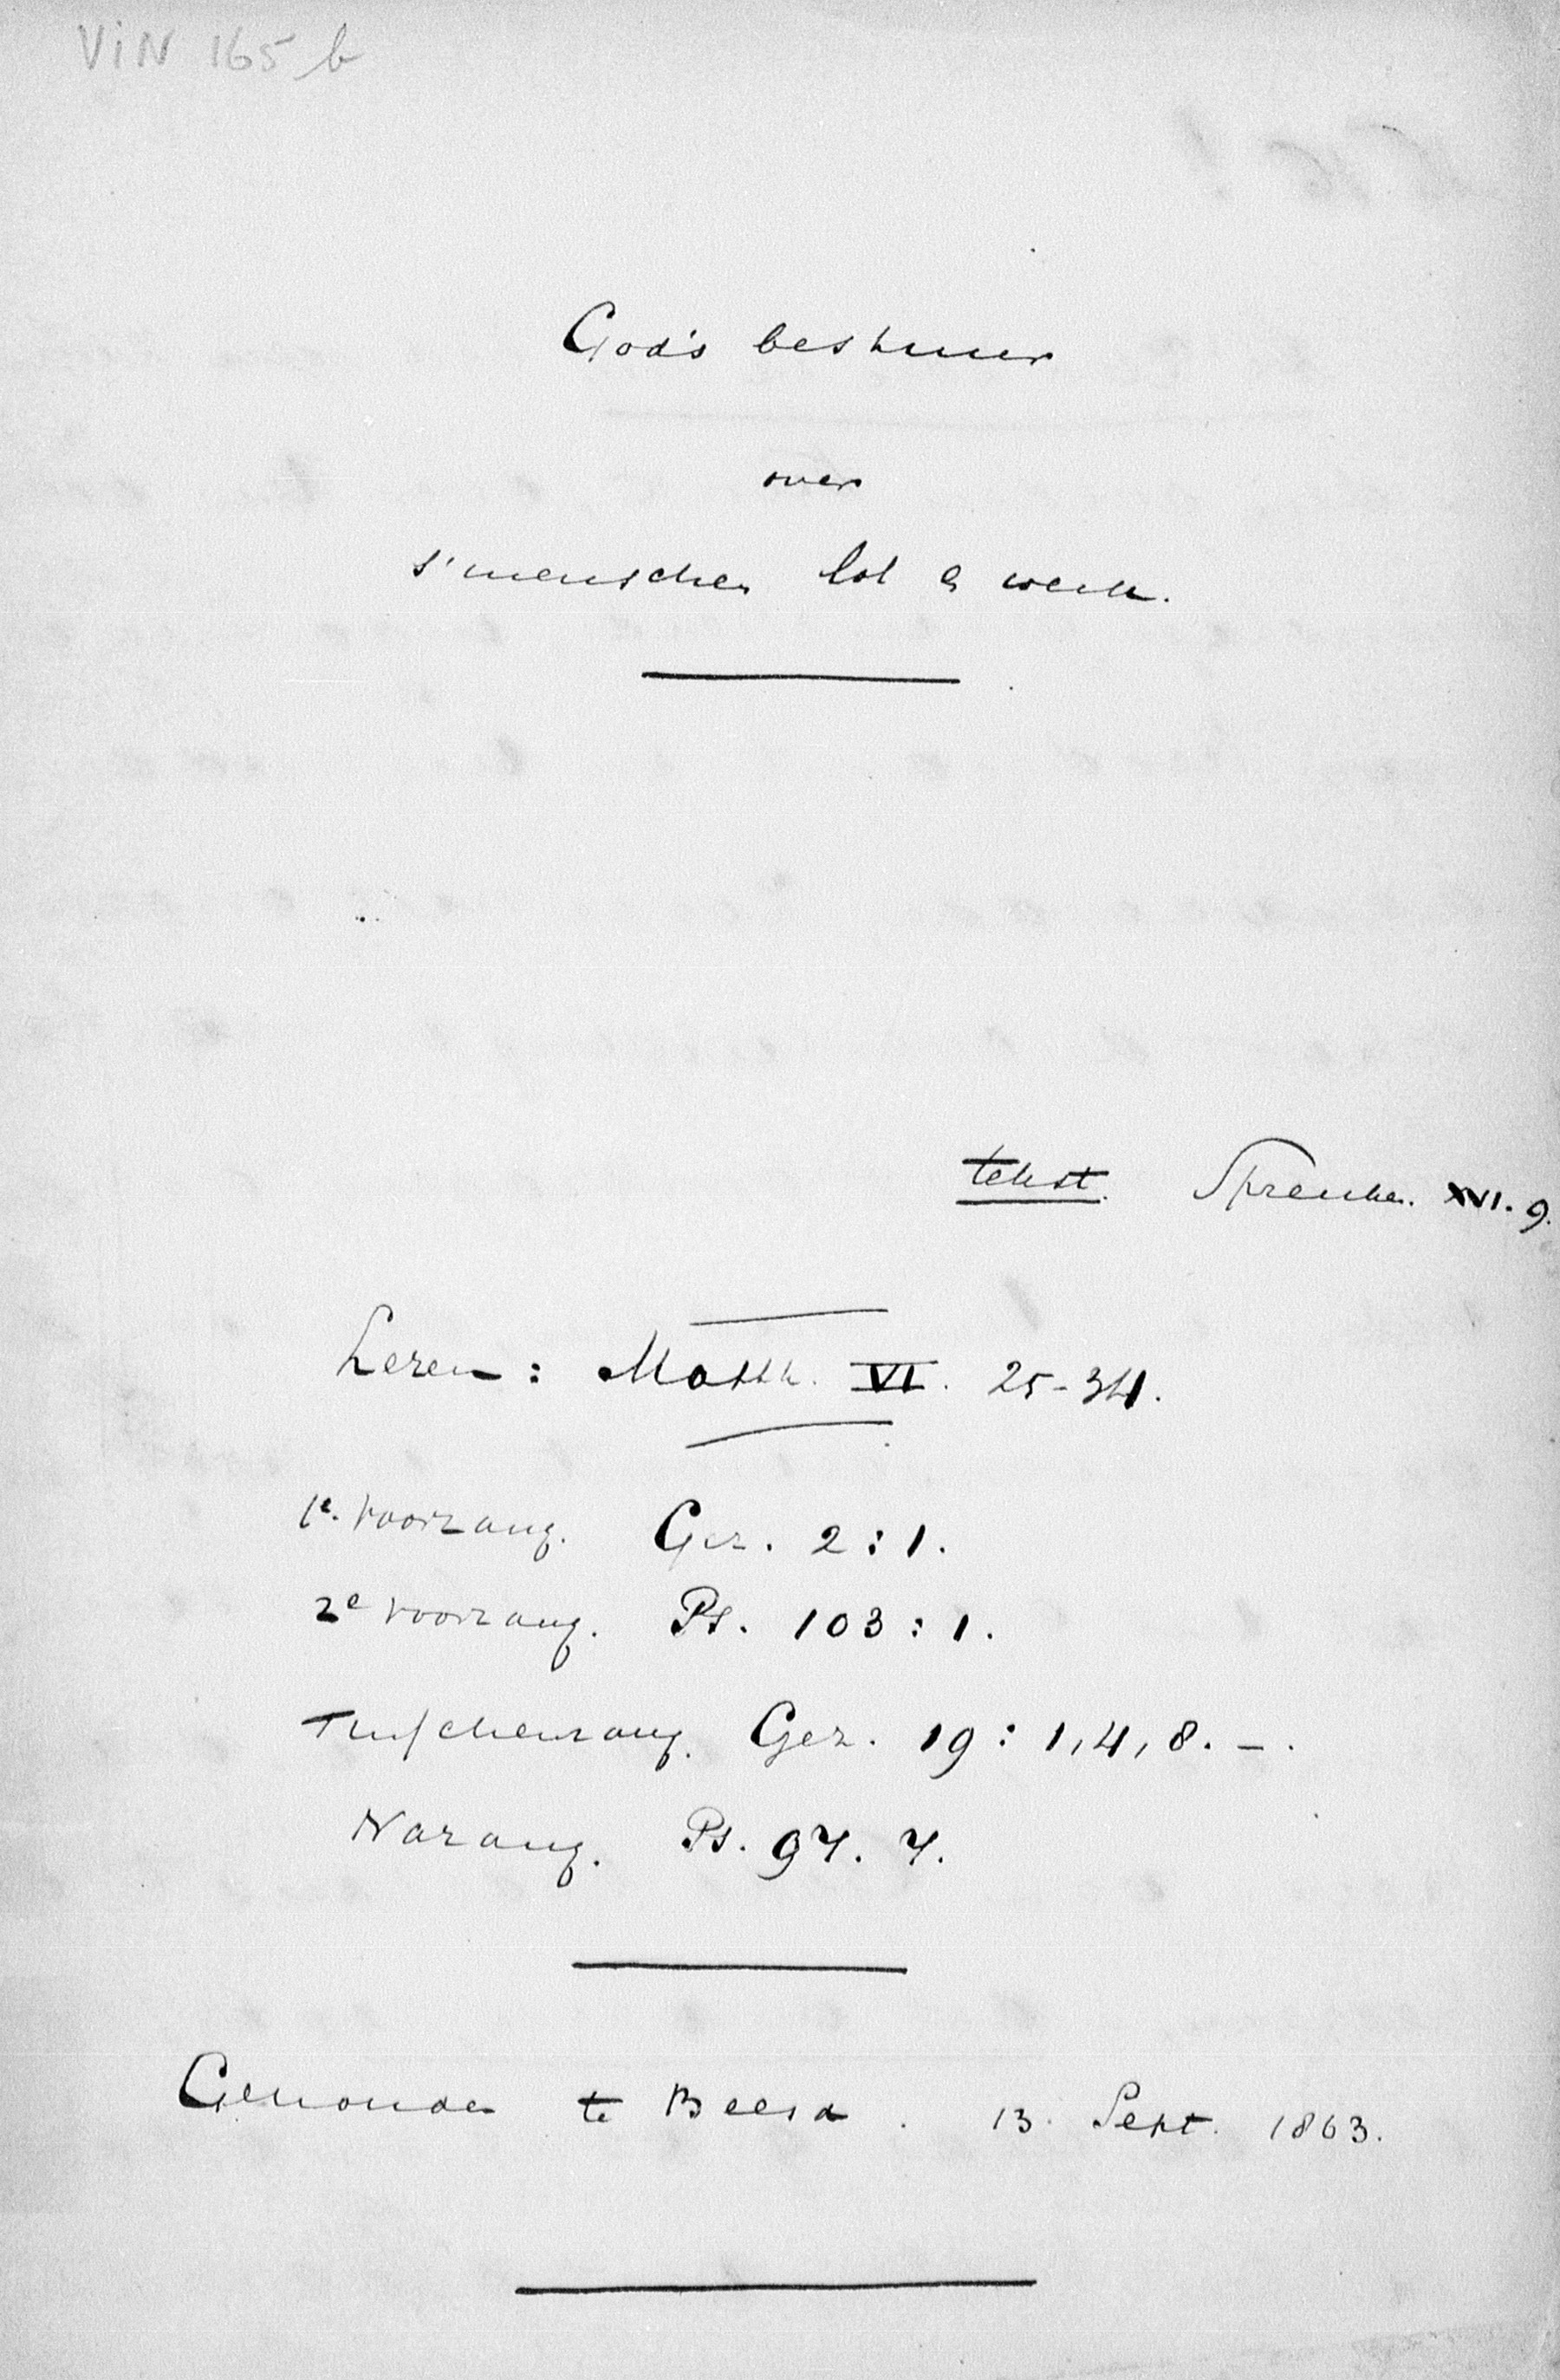 ViN 165 b
God's bestuur
over
s'menschen lot en werk.
tekst. Spreuken. XVI. 9.
Lezen: Matth. VI. 25-34.
1e. Voorzang. Gez. 2:1.
2e Voorzang. Ps. 103:1.
Tusschenzang. Gez. 19: 1, 4, 8. - .
Nazang. Ps. 97. 7.
Gehouden te Beesd. 13. Sept. 1863.